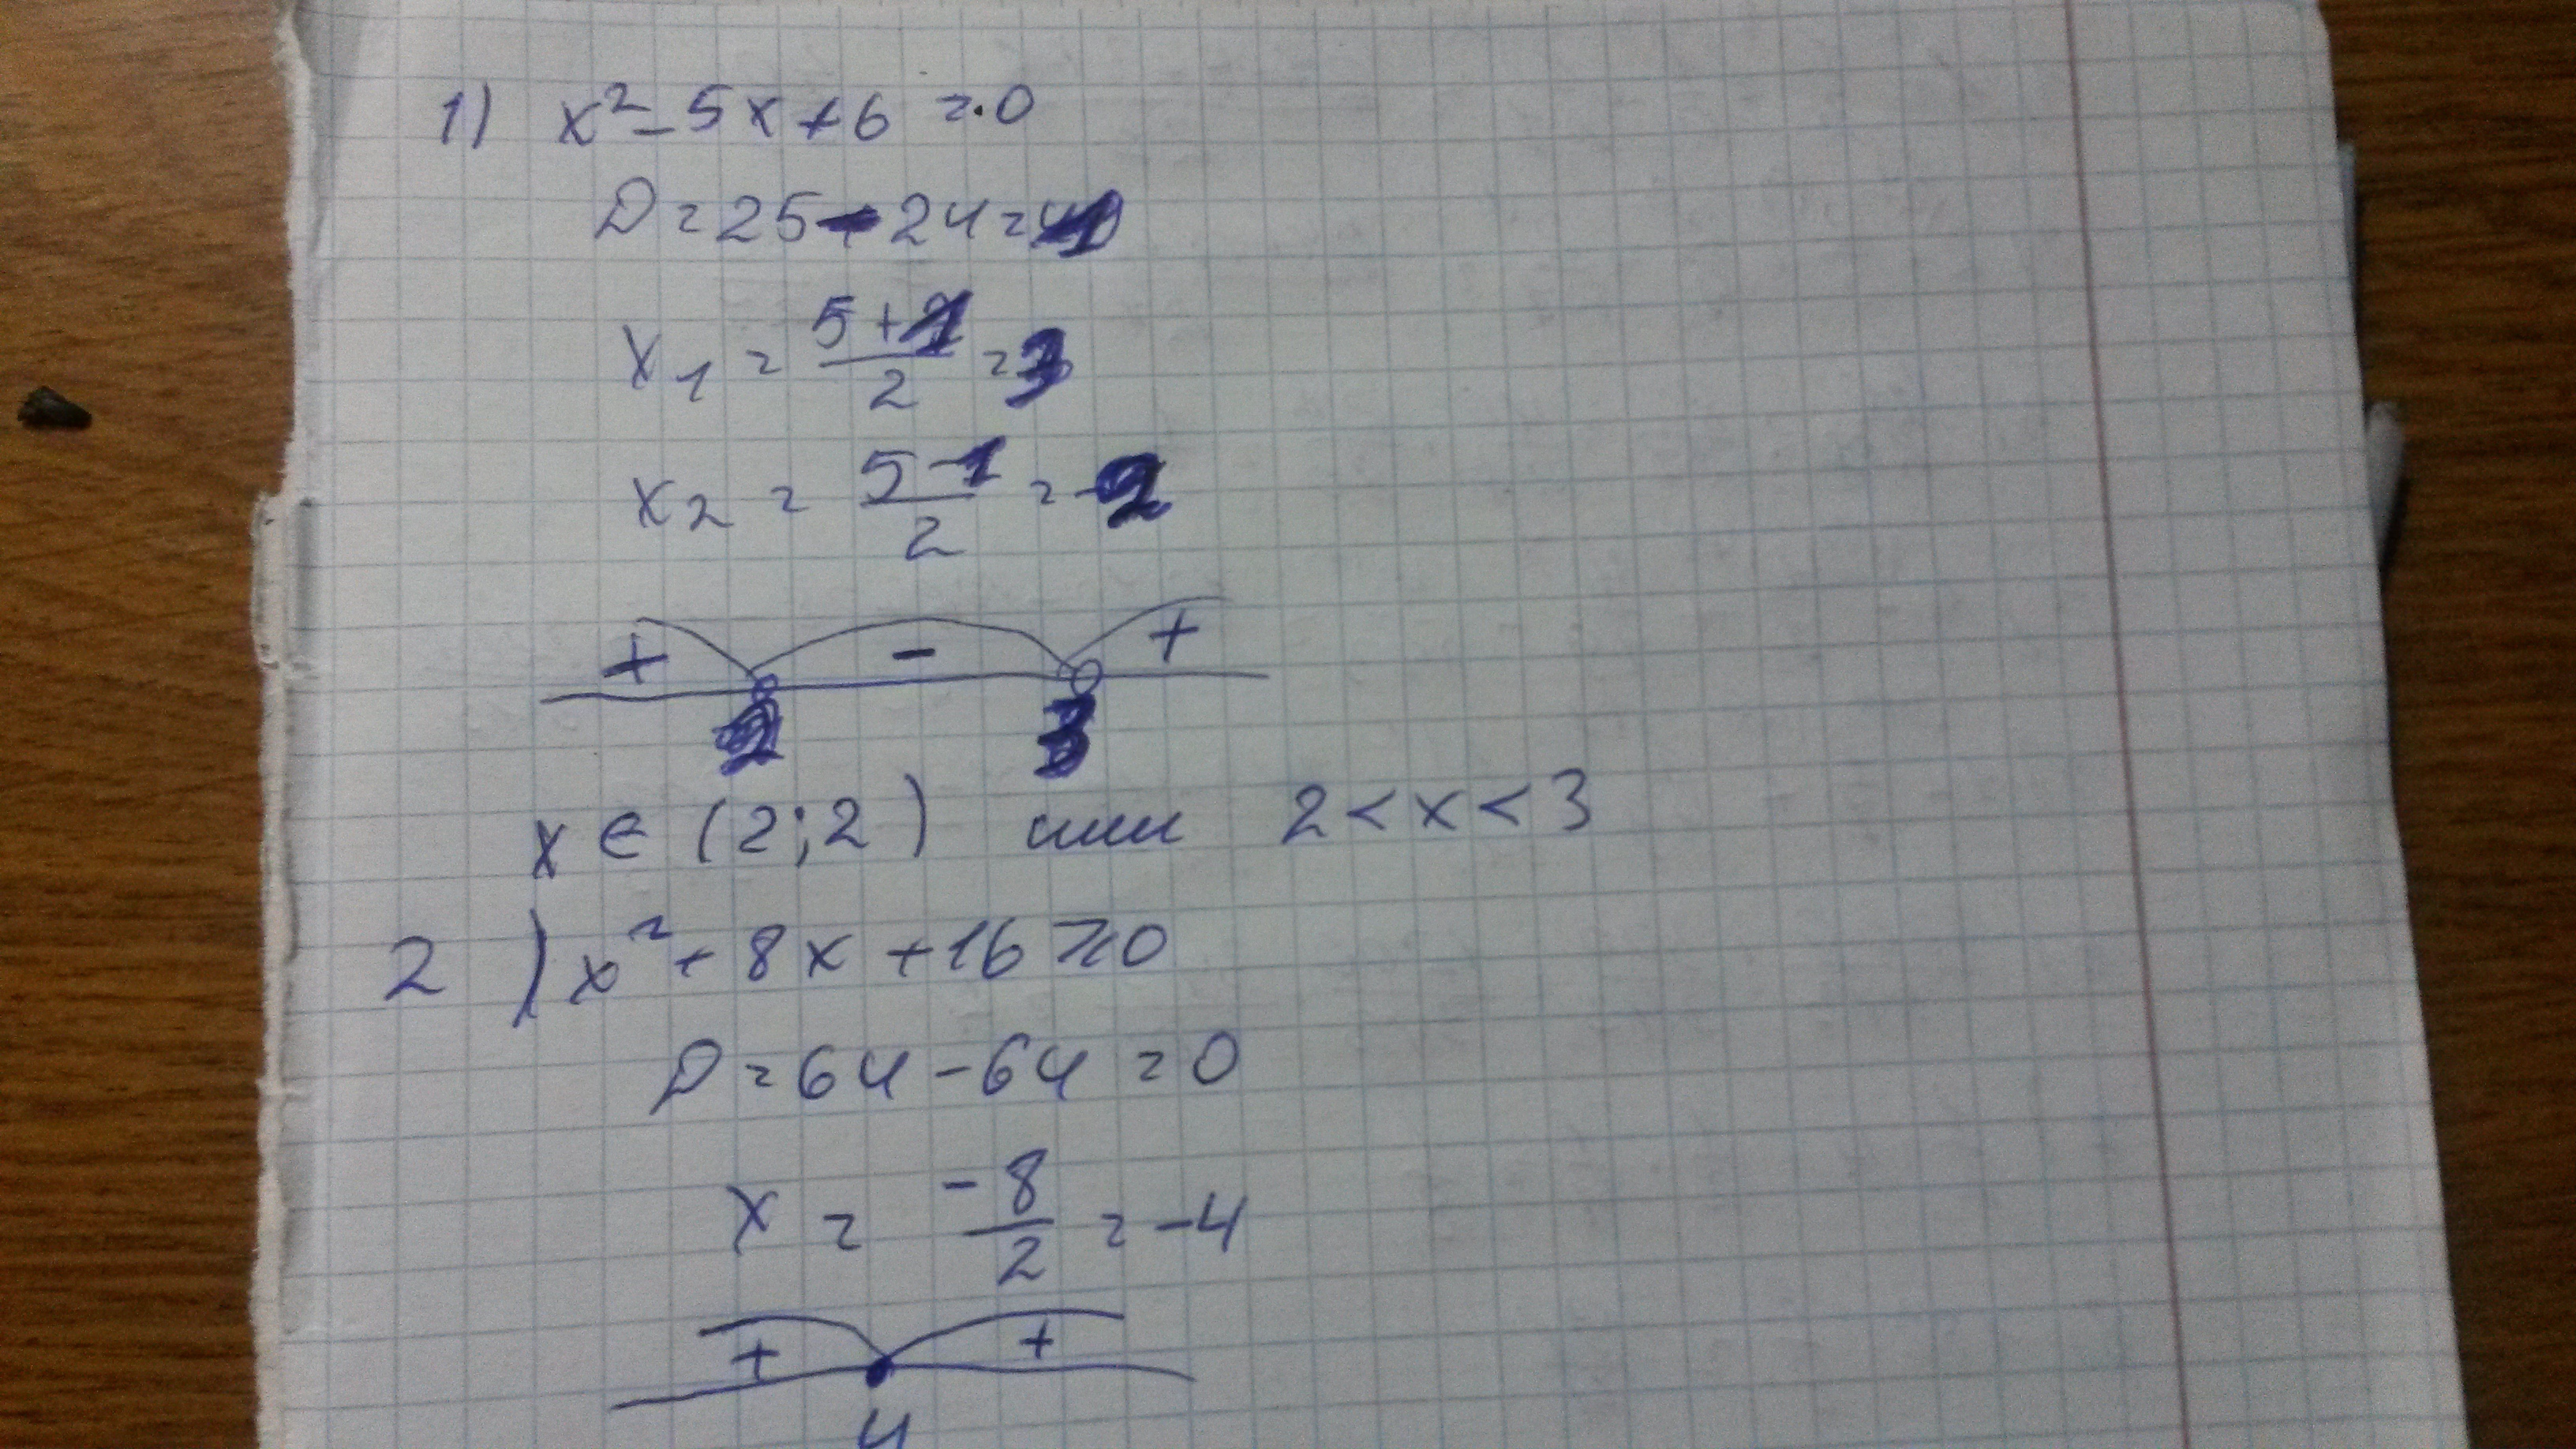 1) x² - 5x + 6 = 0
D = 25 - 24 = 1
x₁ = (5+1)/2 = 3
x₂ = (5-1)/2 = 2
+ - +
2 3
x ∈ (2;2) или 2 < x < 3
2) x² + 8x + 16 ⩾ 0
D = 64 - 64 = 0
x = -8/2 = -4
+ +
4